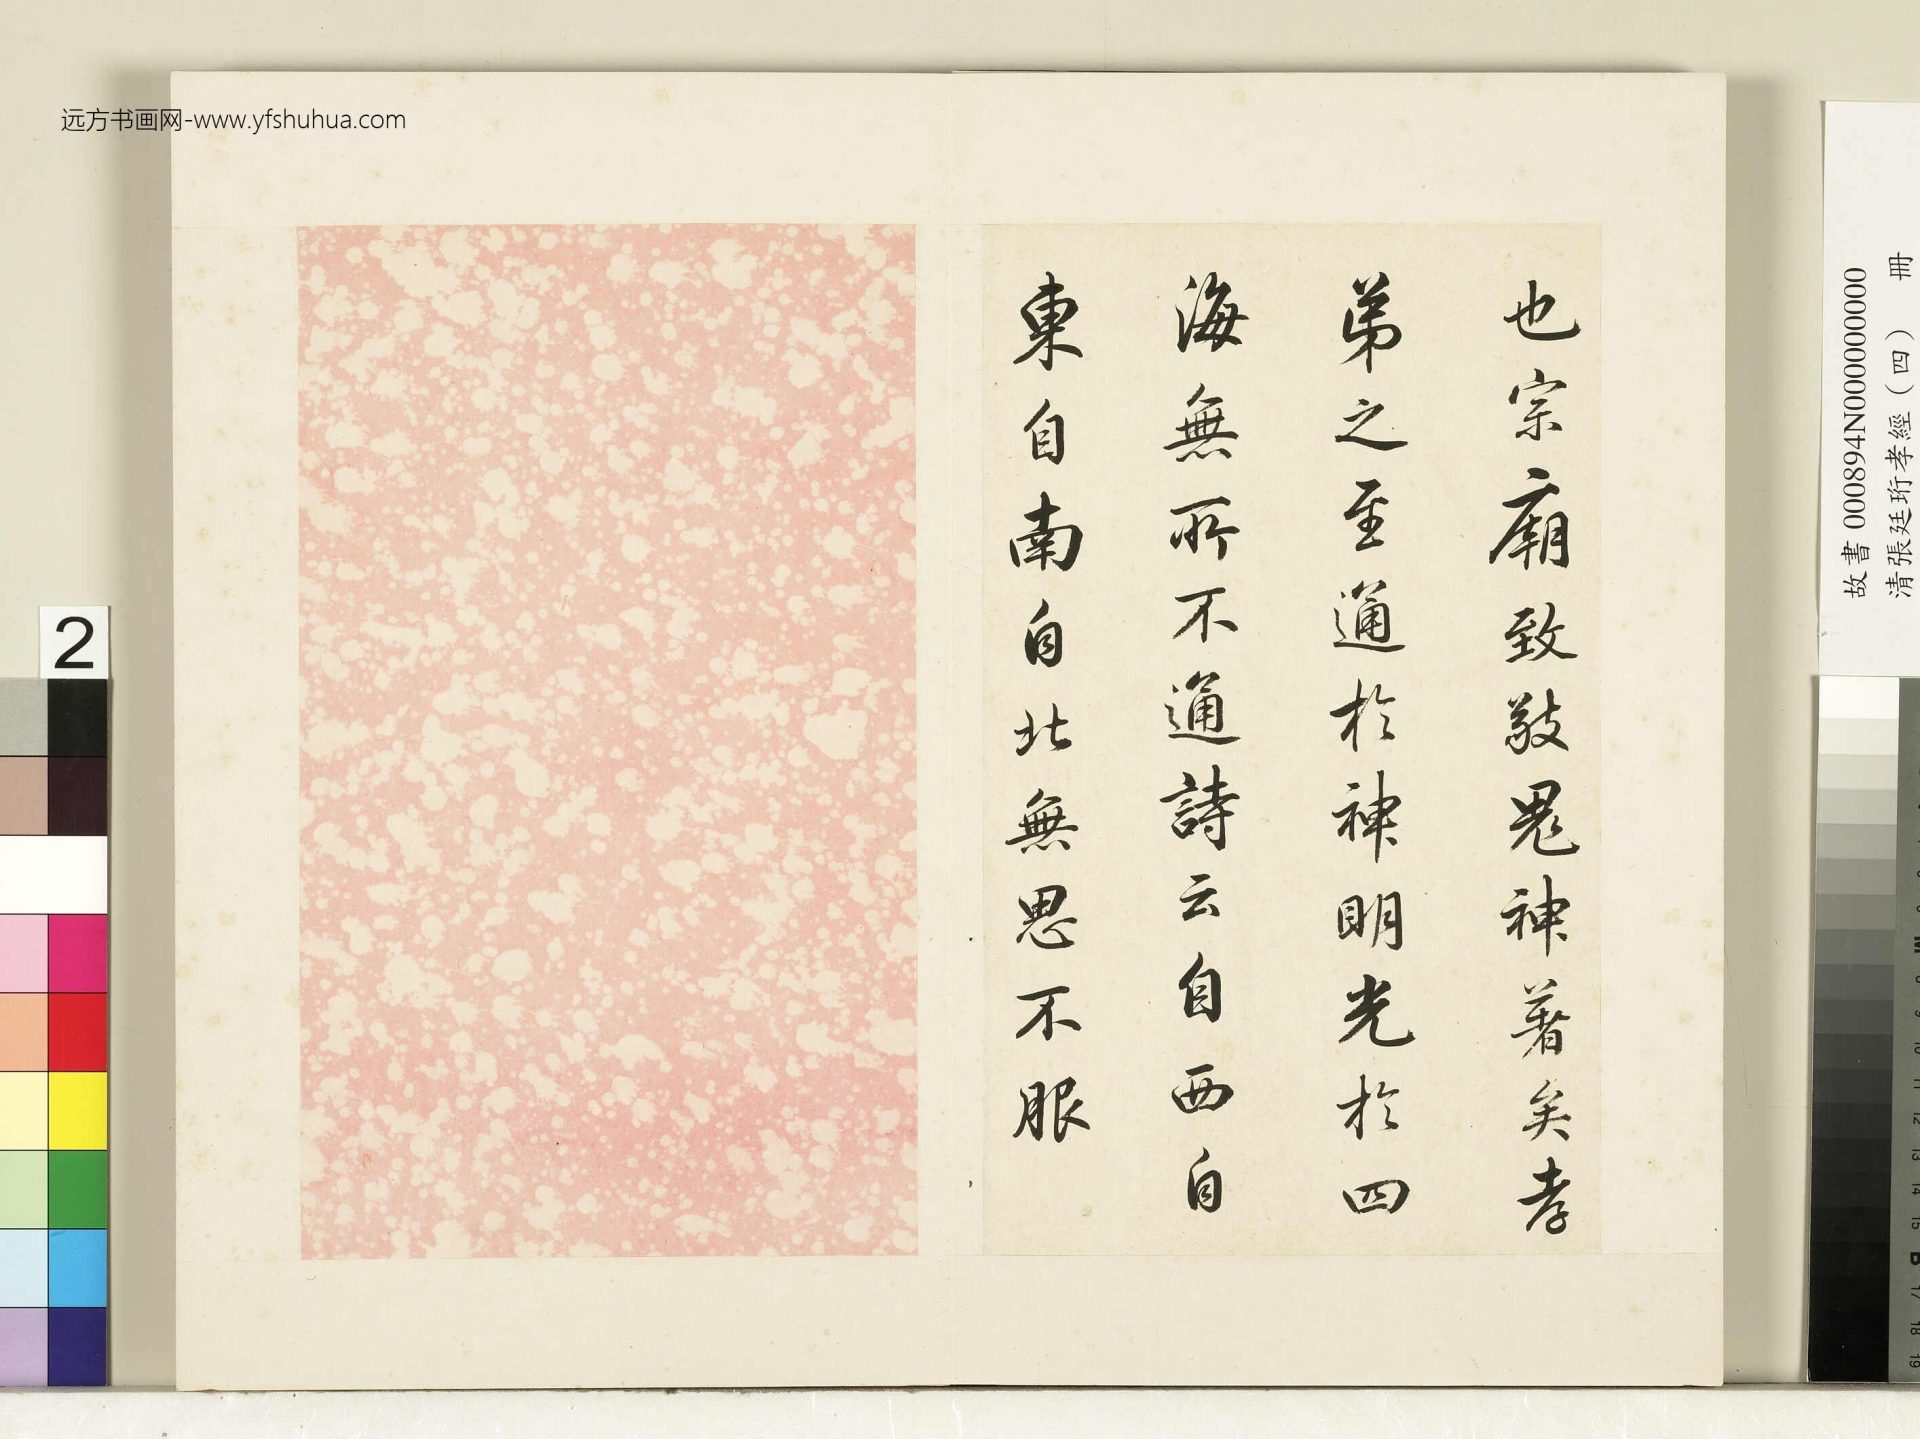 也宗廟致敬鬼神著矣孝
弟之至通於神明光於四
海無所不通詩云自西自
東自南自北無思不服
远方书画网-www.yfshuhua.com
故書 000894N000000000
清張廷珩孝經（四） 冊
2